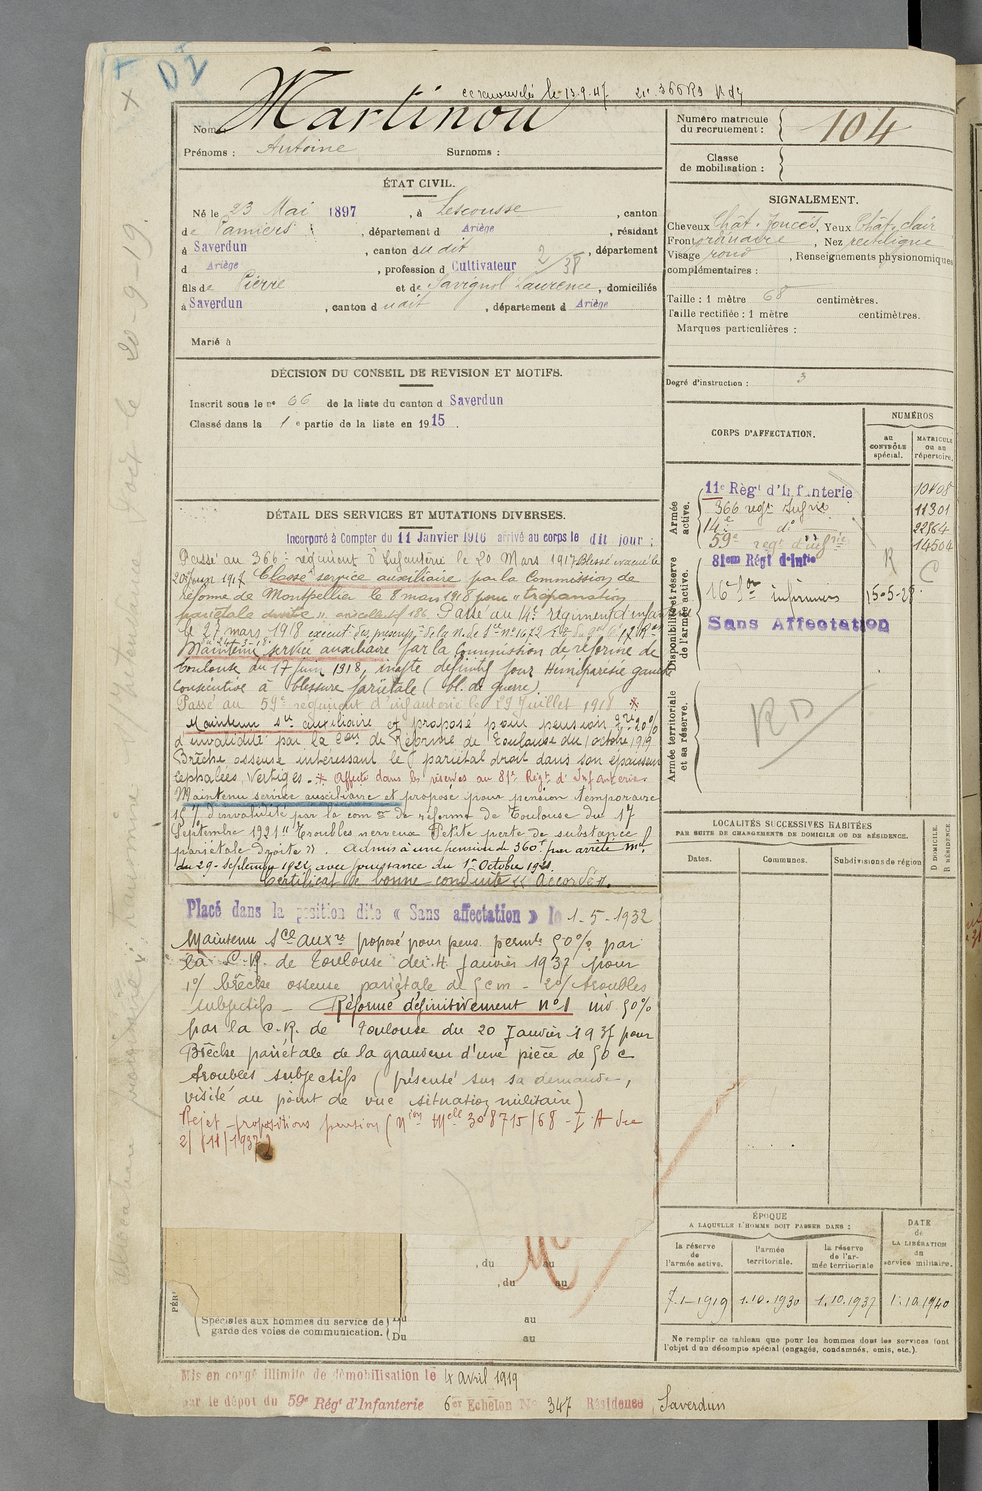 D2
ce renouvelé le 13.9.47
Nom : Martinou
Prénoms : Antoine Surnoms :
Numéro matricule du recrutement : 104
Classe de mobilisation :
ÉTAT CIVIL.
Né le 23 Mai 1897, à Lescousse, canton
de Pamiers, département d Ariège, résidant
à Saverdun, canton du dit, département
d Ariège, profession d Cultivateur 2/38
fils de Pierre et de Savignol Laurence, domiciliés
à Saverdun, canton dudit, département d Ariège
Marié à
SIGNALEMENT.
Cheveux Chât. foncés, Yeux Chât. clair
Front ordinaire, Nez rectiligne
Visage rond, Renseignements physionomiques
complémentaires :
Taille : 1 mètre 68 centimètres.
Taille rectifiée : 1 mètre centimètres.
Marques particulières :
Degré d'instruction : 3
DÉCISION DU CONSEIL DE REVISION ET MOTIFS.
Inscrit sous le n° 66 de la liste du canton d Saverdun
Classé dans la 1e partie de la liste en 1915.
DÉTAIL DES SERVICES ET MUTATIONS DIVERSES.
Incorporé à Compter du 11 Janvier 1916 arrivé au corps le dit jour ;
Passé au 366e régiment d'Infanterie le 20 Mars 1917 Blessé évacué le
20 juin 1917 Classé service auxiliaire par la Commission de
réforme de Montpellier le 8 mars 1918 pour "trépanation
pariétale droite". Passé au 14e régiment d'infanterie
le 27 mars 1918
Maintenu service auxiliaire par la Commission de réforme de
Toulouse du 17 juin 1918, inapte définitif pour Hémiparésie gauche
consécutive à blessure pariétale (bl. de guerre).
Passé au 59e régiment d'infanterie le 29 Juillet 1918 *
Maintenu sce auxiliaire et proposé pour pension 20%
d'invalidité par la Con de Réforme de Toulouse du 1 octobre 1919
Brèche osseuse intéressant le pariétal droit dans son épaisseur
céphalées, vertiges. * Affecté dans les réserves au 81e Régt d'Infanterie
Maintenu service auxiliaire et proposé pour pension temporaire
15% d'invalidité par la com on de réforme de Toulouse du 17
Septembre 1921 "Troubles nerveux Petite perte de substance
pariétale droite". Admis à une pension de 360f par arrêté
du 29 septembre 1922 avec jouissance du 1er Octobre 1921.
Certificat de bonne conduite "Accordé".
Placé dans la position dite « Sans affectation » le 1-5-1932
Maintenu Sce auxre proposé pour pens. permte 50% par
la C.R. de Toulouse du 4 Janvier 1937 pour
1°/ brèche osseuse pariétale de 5 cm - 2°/ troubles
subjectifs - Réformé définitivement n°1 inv. 50%
par la C.R. de Toulouse du 20 Janvier 1937 pour
Brèche pariétale de la grandeur d'une pièce de 50 c
troubles subjectifs (présenté sur sa demande,
visité au point de vue situation militaire)
Rejet propositions pension
CORPS D'AFFECTATION.
NUMÉROS
au CONTRÔLE spécial.
MATRICULE ou au répertoire.
Armée active.
11e Régt d'Infanterie 10408
366 regt Infrie 11301
14e do 22864
59e regt d'infrie 14504
Disponibilité et réserve de l'armée active.
81eme Régt d'Infie
16e Son infirmiers 15-5-28
R
C
Sans Affectation
Armée territoriale et sa réserve.
RD
LOCALITÉS SUCCESSIVES HABITÉES
PAR SUITE DE CHANGEMENTS DE DOMICILE OU DE RÉSIDENCE.
Dates. Communes. Subdivisions de région
D DOMICILE. R RÉSIDENCE.
ÉPOQUE
A LAQUELLE L'HOMME DOIT PASSER DANS :
la réserve de l'armée active.
l'armée territoriale.
la réserve de l'armée territoriale
DATE de LA LIBÉRATION du service militaire.
7-1-1919 1.10.1930 1.10.1937 1.10.1940
Ne remplir ce tableau que pour les hommes dont les services font
l'objet d'un décompte spécial (engagés, condamnés, omis, etc.).
, du au
, du au
Spéciales aux hommes du service de garde des voies de communication.
Du au
Du au
Mis en congé illimité de démobilisation le 4 avril 1919
par le dépôt du 59e Régt d'Infanterie 6er Echelon N° 347 Résidence Saverdun